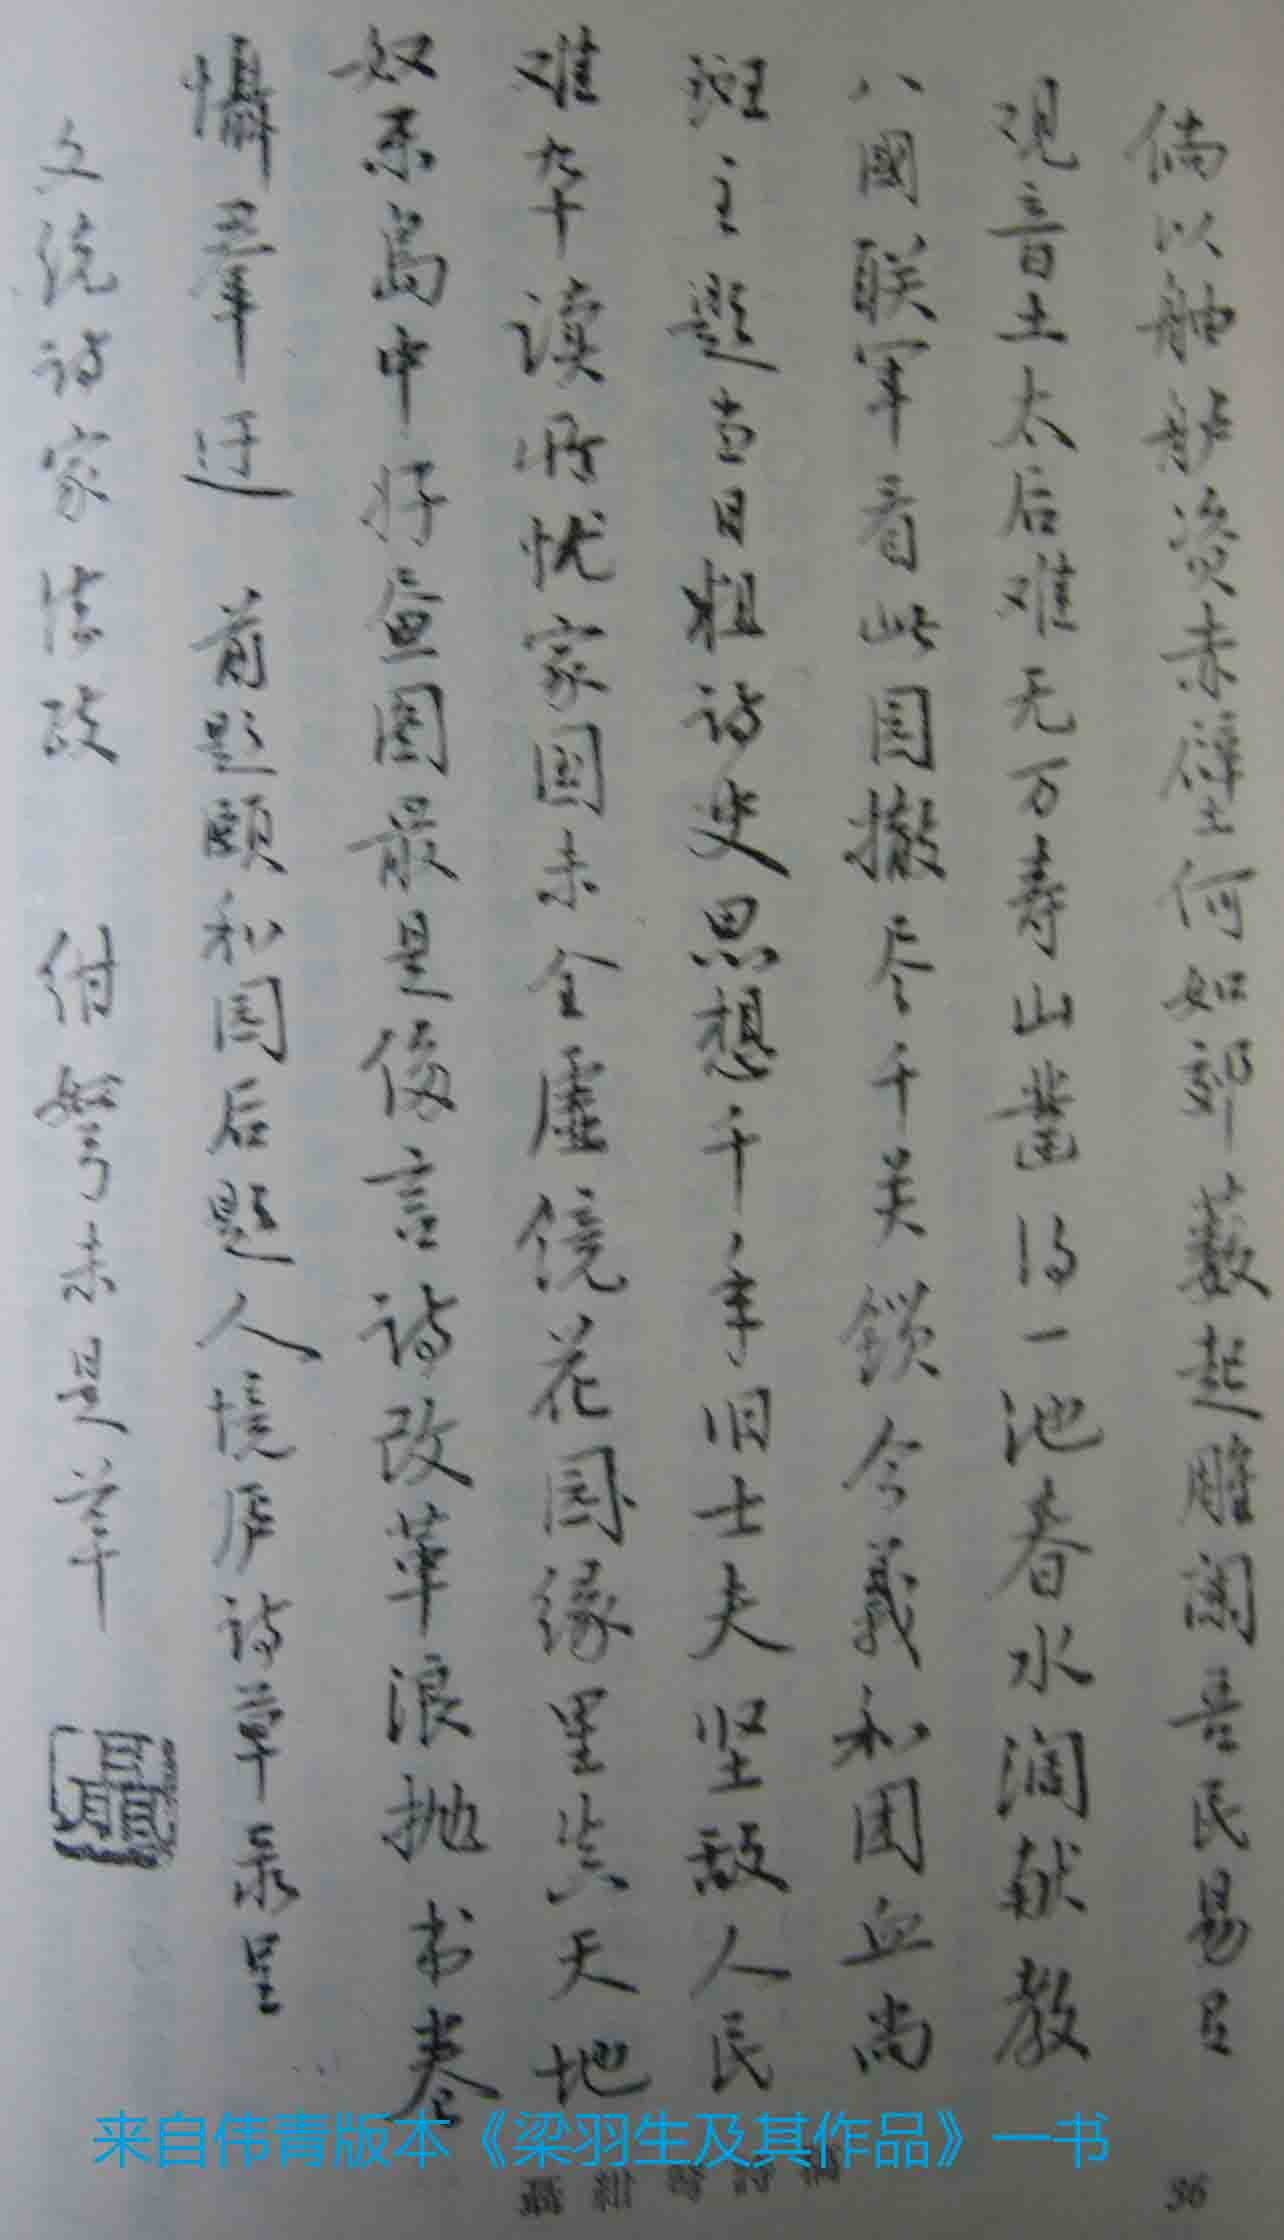 倘以舳舻资赤壁何如郊薮起雕阑吾民易与
观音土太后难无万寿山凿得一池春水润献教
八國联军看此园撤尽千关锁今義和团血尚
斑主题当日粗诗史思想千年旧士夫坚敌人民
难卒读所忧家国未全虚镜花园缘里学天地
奴乐岛中好画图最是倭言诗改革浪抛书卷
慑群迂 前题颐和园后题人境庐诗草录呈
文统诗家法政 绀弩未是草
聂绀弩詩滿
36
来自伟青版本《梁羽生及其作品》一书